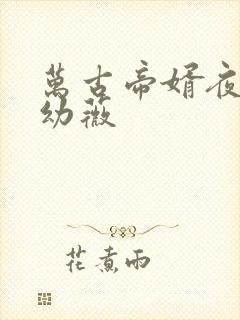 萬古帝婿夜
幼薇
花煮雨